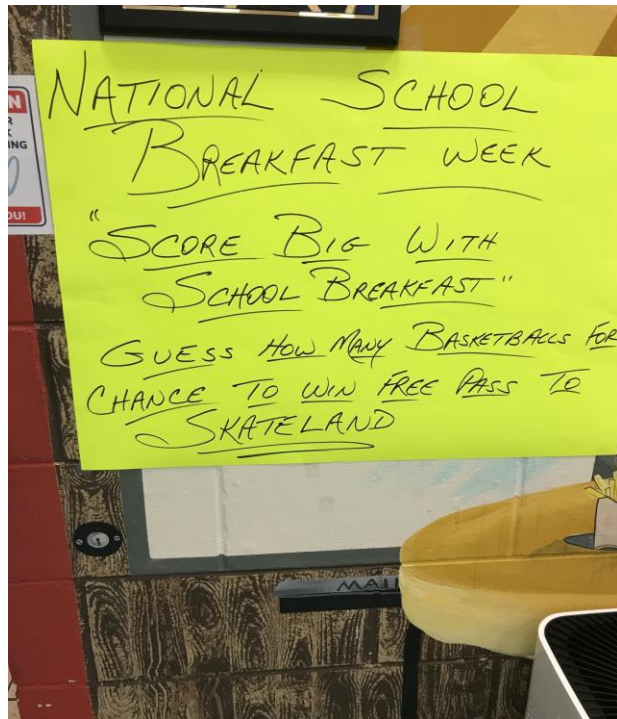 NATIONAL SCHOOL
BREAKFAST WEEK
"SCORE BIG WITH
SCHOOL BREAKFAST"
GUESS HOW MANY BASKETBALLS FOR
CHANCE TO WIN FREE PASS TO
SKATELAND
MAI